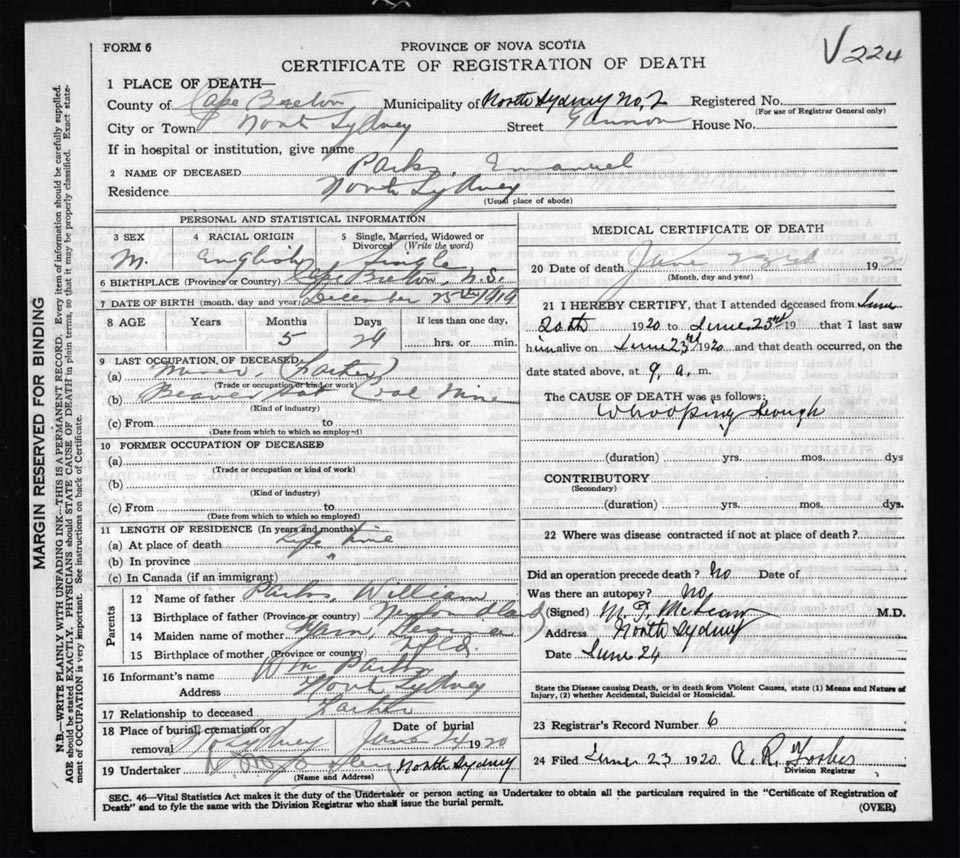 V 224
FORM 6
PROVINCE OF NOVA SCOTIA
CERTIFICATE OF REGISTRATION OF DEATH
1 PLACE OF DEATH—
County of Cape Breton Municipality of North Sydney No, 2 Registered No.
(For use of Registrar General only)
City or Town North Sydney Street Gannon House No.
If in hospital or institution, give name
2 NAME OF DECEASED Parks, Emanuel
Residence North Sydney
(Usual place of abode)
PERSONAL AND STATISTICAL INFORMATION
3 SEX
M.
4 RACIAL ORIGIN
English
5 Single, Married, Widowed or Divorced (Write the word)
Single
6 BIRTHPLACE (Province or Country) Cape Breton, N.S.
7 DATE OF BIRTH (month, day and year) December 25th 1919
8 AGE Years Months Days If less than one day,
5 29 hrs. or min.
9 LAST OCCUPATION, OF DECEASED
(a) Miner, (Father)
(Trade or occupation or kind or work)
(b) Beaver Coal Mine
(Kind of industry)
(c) From to
(Date from which to which so employed)
10 FORMER OCCUPATION OF DECEASED
(a)
(Trade or occupation or kind of work)
(b)
(Kind of industry)
(c) From to
(Date from which to which so employed)
11 LENGTH OF RESIDENCE (In years and months)
(a) At place of death Life time
(b) In province "
(c) In Canada (if an immigrant)
Parents
12 Name of father Parks, William
13 Birthplace of father (Province or country) Newfoundland
14 Maiden name of mother
15 Birthplace of mother (Province or country) Nfld.
16 Informant's name Wm Parks
Address North Sydney
17 Relationship to deceased Father
18 Place of burial, cremation or removal No. Sydney Date of burial June 24 1920
19 Undertaker North Sydney
(Name and Address)
MEDICAL CERTIFICATE OF DEATH
20 Date of death June 23rd 1920
(Month, day and year)
21 I HEREBY CERTIFY, that I attended deceased from June
20th 1920 to June 23rd 19 that I last saw
him alive on June 23rd 1920 and that death occurred, on the
date stated above, at 9, a, m.
The CAUSE OF DEATH was as follows:
Whooping Cough
(duration) yrs. mos. dys
CONTRIBUTORY
(Secondary)
(duration) yrs. mos. dys.
22 Where was disease contracted if not at place of death?
Did an operation precede death? No Date of
Was there an autopsy? No,
(Signed) M. T. McLean M.D.
Address North Sydney
Date June 24
State the Disease causing Death, or in death from Violent Causes, state (1) Means and Nature of
Injury, (2) whether Accidental, Suicidal or Homicidal.
23 Registrar's Record Number 6
24 Filed June 23 1920 A. R. Forbes
Division Registrar
SEC. 46—Vital Statistics Act makes it the duty of the Undertaker or person acting as Undertaker to obtain all the particulars required in the "Certificate of Registration of
Death" and to fyle the same with the Division Registrar who shall issue the burial permit.
(OVER)
MARGIN RESERVED FOR BINDING
N.B.—WRITE PLAINLY WITH UNFADING INK—THIS IS A PERMANENT RECORD. Every item of information should be carefully supplied.
AGE should be stated EXACTLY. PHYSICIANS should STATE CAUSE OF DEATH in plain terms, so that it may be properly classified. Exact statement of OCCUPATION is very important. See instructions on back of Certificate.